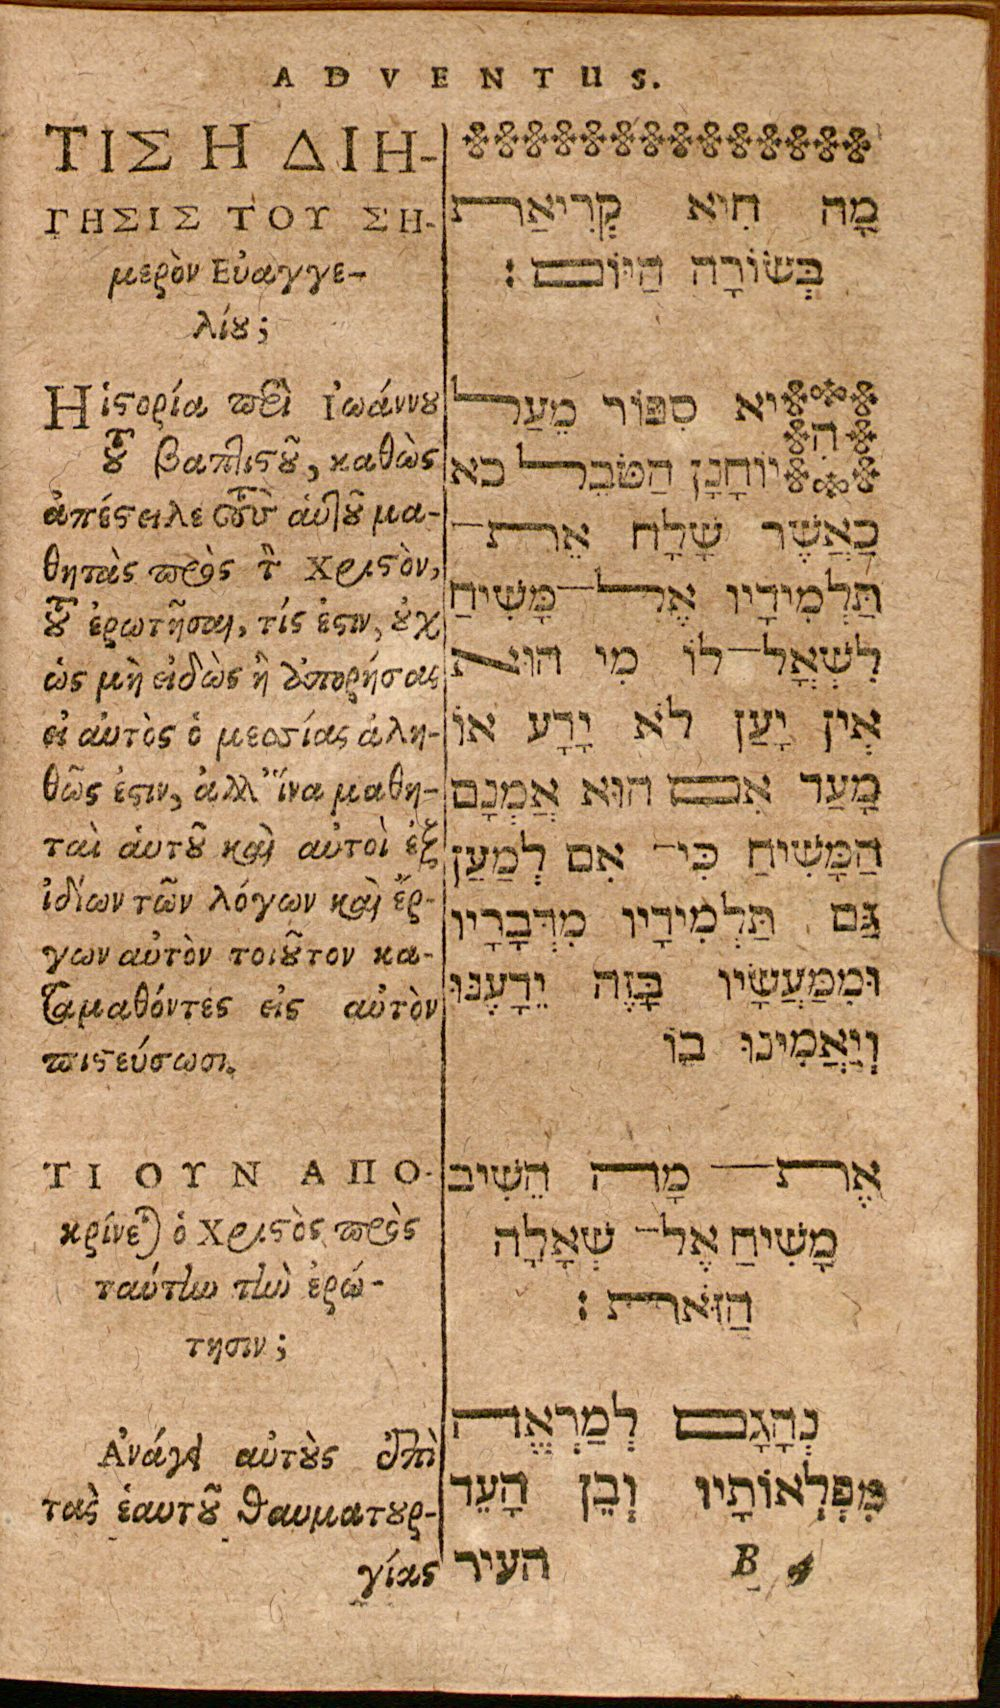 ADVENTUS.
ΤΙΣ Η ΔΙΗ-
ΓΗΣΙΣ ΤΟΥ ΣΗ-
μερὸν Εὐαγγε-
λίȣ;
Ηἱϛορία πεὶ Ἰωάννȣ
τȣ͂ βαπτιϛȣ͂, καθὼς
ἀπέϛειλε τὺς ἁυτȣ͂ μα-
θητὰς πρὸς τ̀ Χριϛὸν,
τȣ͂ ἐρωτῆσαι, τίς ἐϛιν, ȣ̓χ
ὡς μὴ εἰδὼς ἢ ἀπορήσας
εἰ αὐτὸς ὁ μεσσίας ἀλη-
θῶς ἐϛιν, ἀλλ' ἵνα μαθη-
ταὶ ἁυτȣ͂ καὶ αὐτοὶ ἐξ
ἰδίων τῶν λόγων καὶ ἔρ-
γων αὐτὸν τοιȣ͂τον κα-
ταμαθόντες εἰς αὐτὸν
πιϛεύσωσι.
ΤΙ ΟΥΝ ΑΠΟ-
κρίνεται ὁ Χριϛὸς πρὸς
ταύτην τὴν ἐρώ-
τησιν;
Ἀνάγει αὐτȣ̀ς ἐπὶ
τὰς ἑαυτȣ͂ θαυματȣρ-
γίας
מָה הִיא קְרִיאַת
בְּשׂוֹרָה הַיּוֹם :
הִיא סִפּוֹר מֵעַל
יוֹחָנָן הַטֹּבֵל כא
כַאֲשֶׁר שָׁלָח אֵת־
תַּלְמִידָיו אֶל־מָּשִׁיחַ
לִשְׁאָל־לוֹ מִי הוּא
אֵין יָעַן לֹא יָדָע אוֹ
מָעַד אִם הוּא אֲמְנָם
הַמָּשִׁיחַ כִּי־ אִם לְמַעַן
גַּם תַּלְמִידָיו מִדְּבָרָיו
וּמִמַּעֲשָׂיו בָּזֶה יֵדָעֶנּוּ
וְיַאֲמִינוּ בוֹ
אֶת־ מָה הֵשִׁיב
מָשִׁיחַ אֶל־ שְׁאָלָה
הַזּאֹת :
נְהָגָם לְמַרְאֶה
מִפְלְאוֹתָיו וְבֵן הָעֵד
העיר B 4